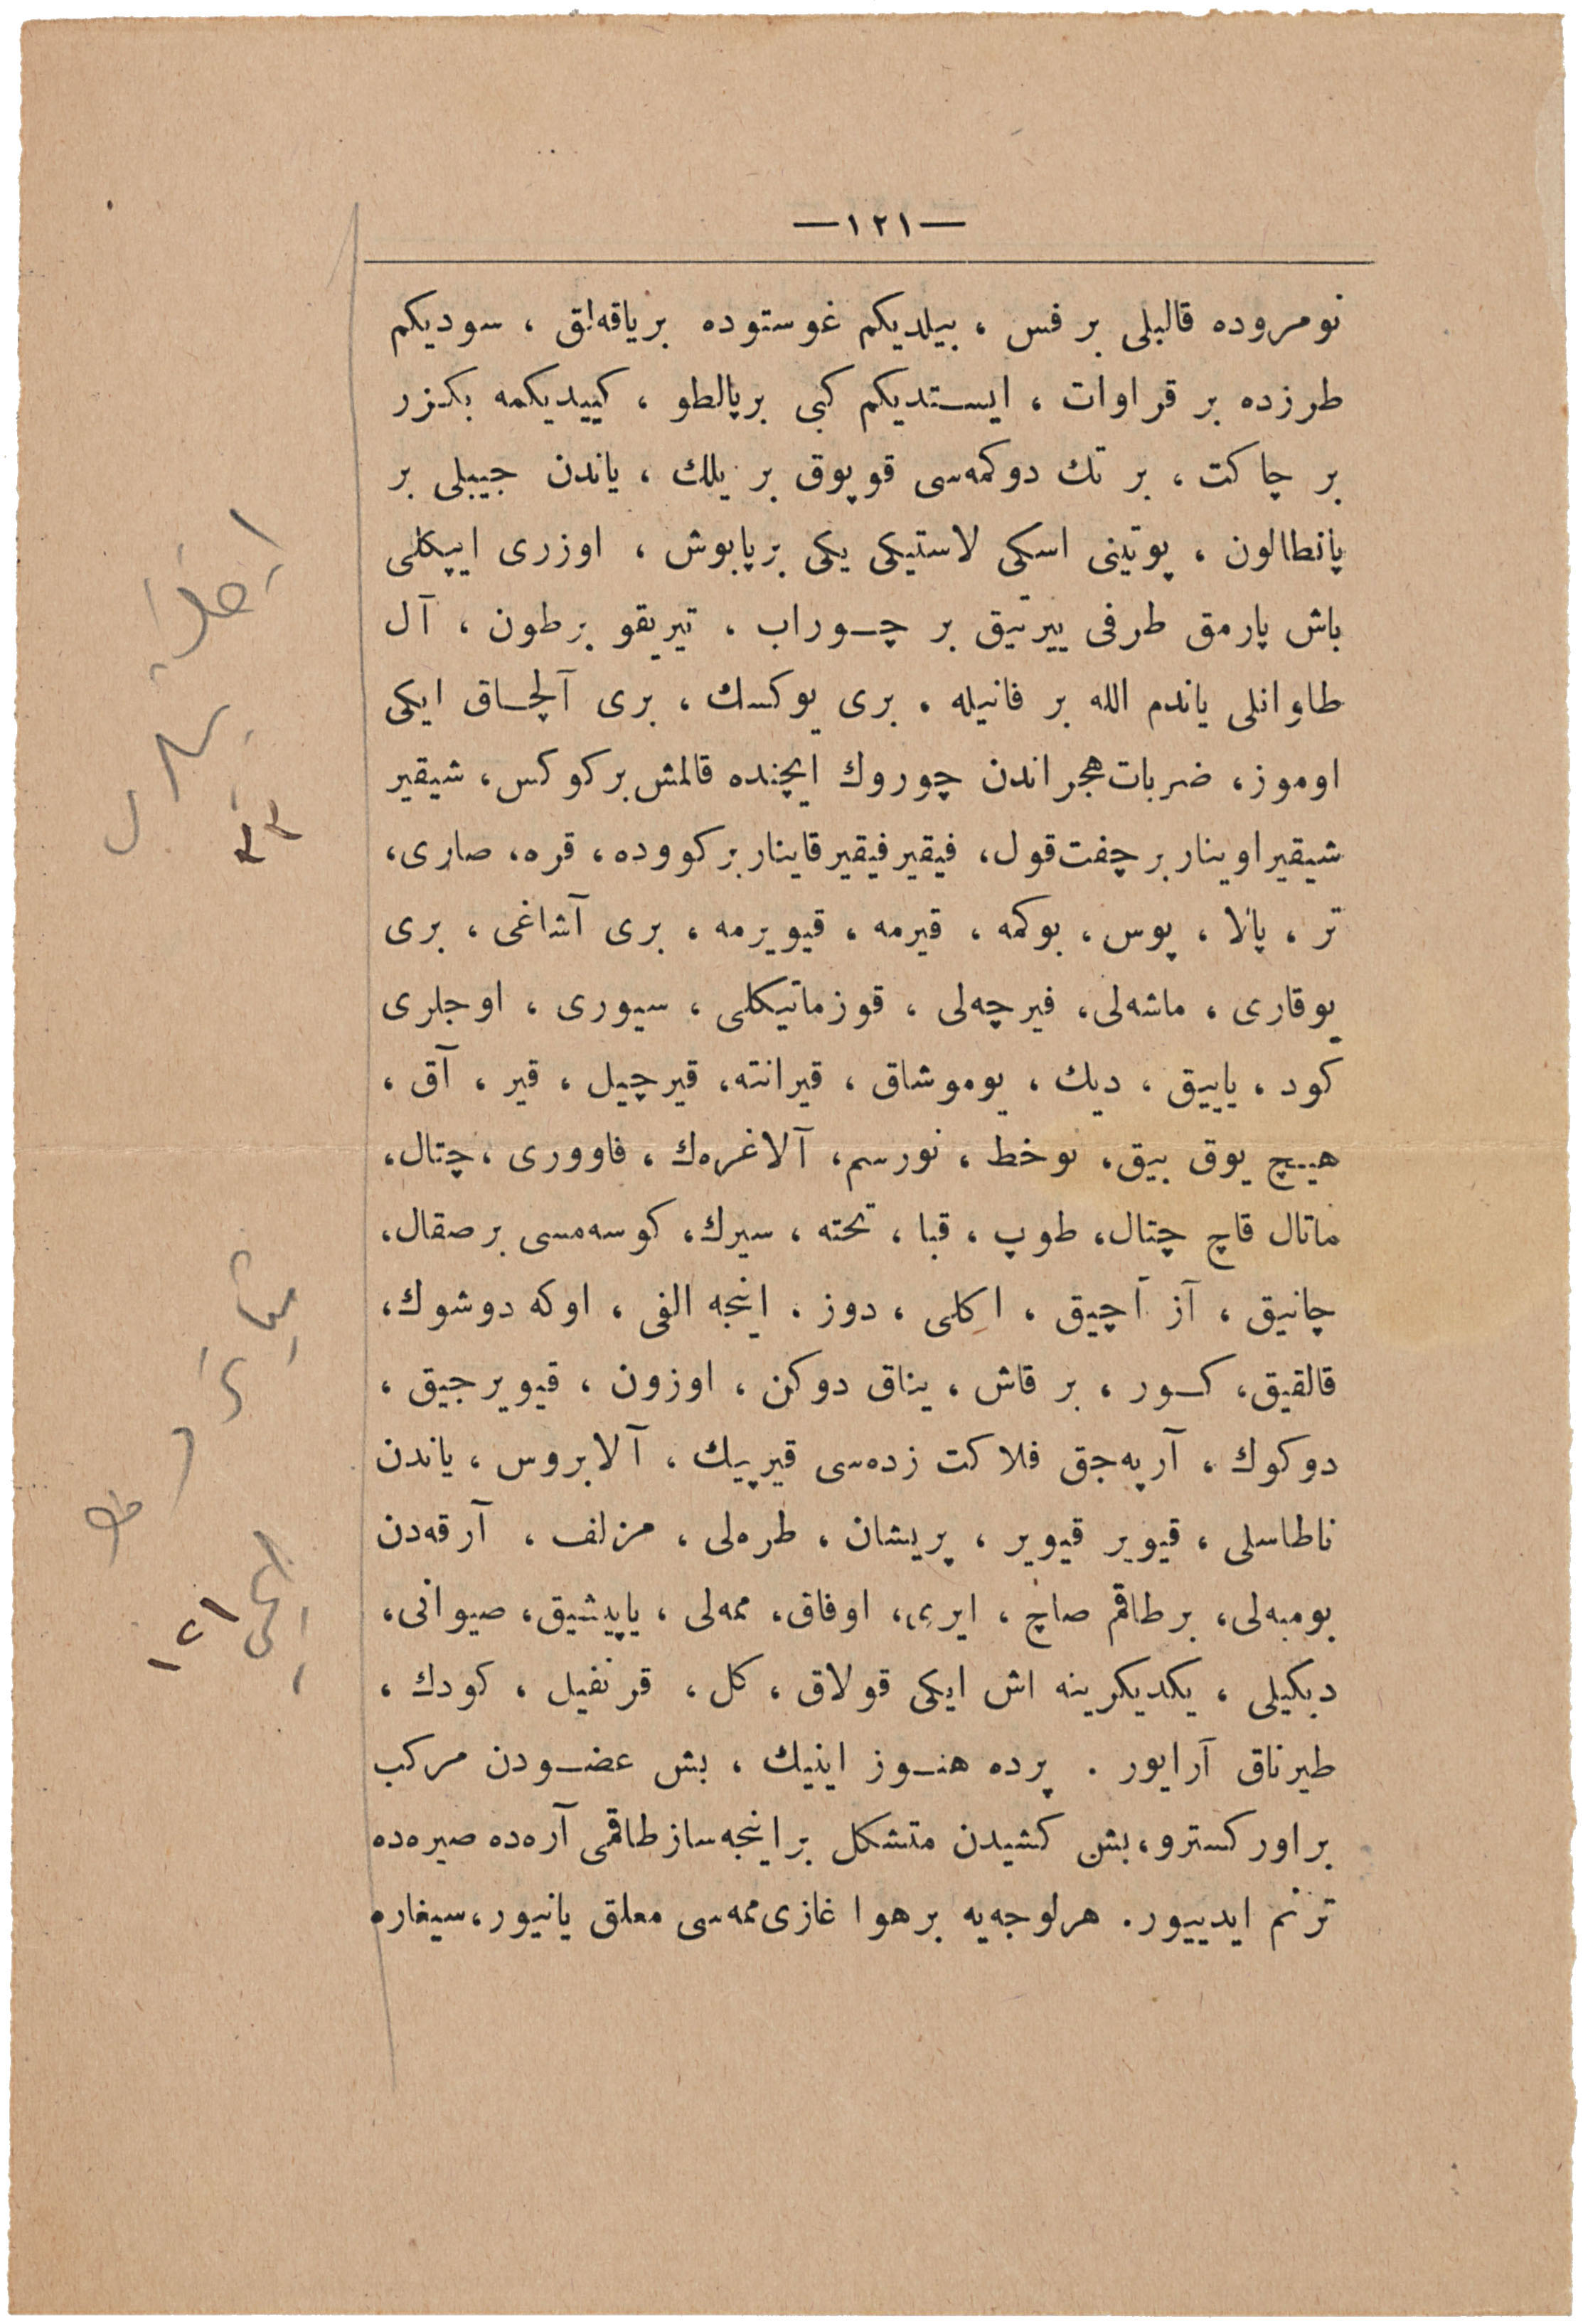 —١٢١—
نومروده قالبلی بر فس ، بیلدیكم غوستوده بریاقه‌لق ، سودیكم
طرزده بر قراوات ، ایستدیكم كبی برپالطو ، كییدیكمه بكزر
بر چاكت ، بر تك دوكمه‌سی قوپوق بر یلك ، یاندن جیبلی بر
پانطالون ، پوتینی اسكی لاستیكی یكی برپابوش ، اوزری ایپكلی
باش پارمق طرفی ییرتیق بر چوراب ، تیریقو برطون ، آل
طاوانلی یاندم الله بر فانیله . بری یوكسك ، بری آلچاق ایكی
اوموز ، ضربات هجراندن چوروك ایچنده قالمش بركوكس ، شیقیر
شیقیر اوینار برچفت قول ، فیقیر فیقیر قاینار بركووده ، قره ، صاری ،
تر ، پالا ، پوس ، بوكمه ، قیرمه ، قیویرمه ، بری آشاغی ، بری
یوقاری ، ماشه‌لی ، فیرچه‌لی ، قوزماتیكلی ، سیوری ، اوجلری
كود ، یاییق ، دیك ، یوموشاق ، قیرانته ، قیرچیل ، قیر ، آق ،
هیچ یوق بیق ، نوخط ، نورسم ، آلاغره‌ك ، فاووری ، چتال ،
ماتال قاچ چتال ، طوپ ، قبا ، تخته ، سیرك ، كوسه‌مسی برصقال ،
چاتیق ، آز آچیق ، اكلی ، دوز . اینجه الفی ، اوكه دوشوك ،
قالقیق ، كور ، بر قاش ، یناق دوكن ، اوزون ، قیویرجیق ،
دوكوك ، آرپه‌جق فلاكت زده‌سی قیرپیك ، آلابروس ، یاندن
ناطاسلی ، قیویر قیویر ، پریشان ، طره‌لی ، مزلف ، آرقه‌دن
بومبه‌لی ، برطاقم صاچ ، ایری ، اوفاق ، ممه‌لی ، یاپیشیق ، صیوانی ،
دیكیلی ، یكدیكرینه اش ایكی قولاق ، كل ، قرنفیل ، كودك ،
طیرناق آرایور . پرده هنوز اینیك ، بش عضودن مركب
براوركسترو ، بش كشیدن متشكل براینجه‌ساز طاقمی آره‌ده صیره‌ده
ترنم ایدییور . هرلوجه‌یه برهوا غازی ممه‌سی معلق یانیور ، سیغاره
١٢١